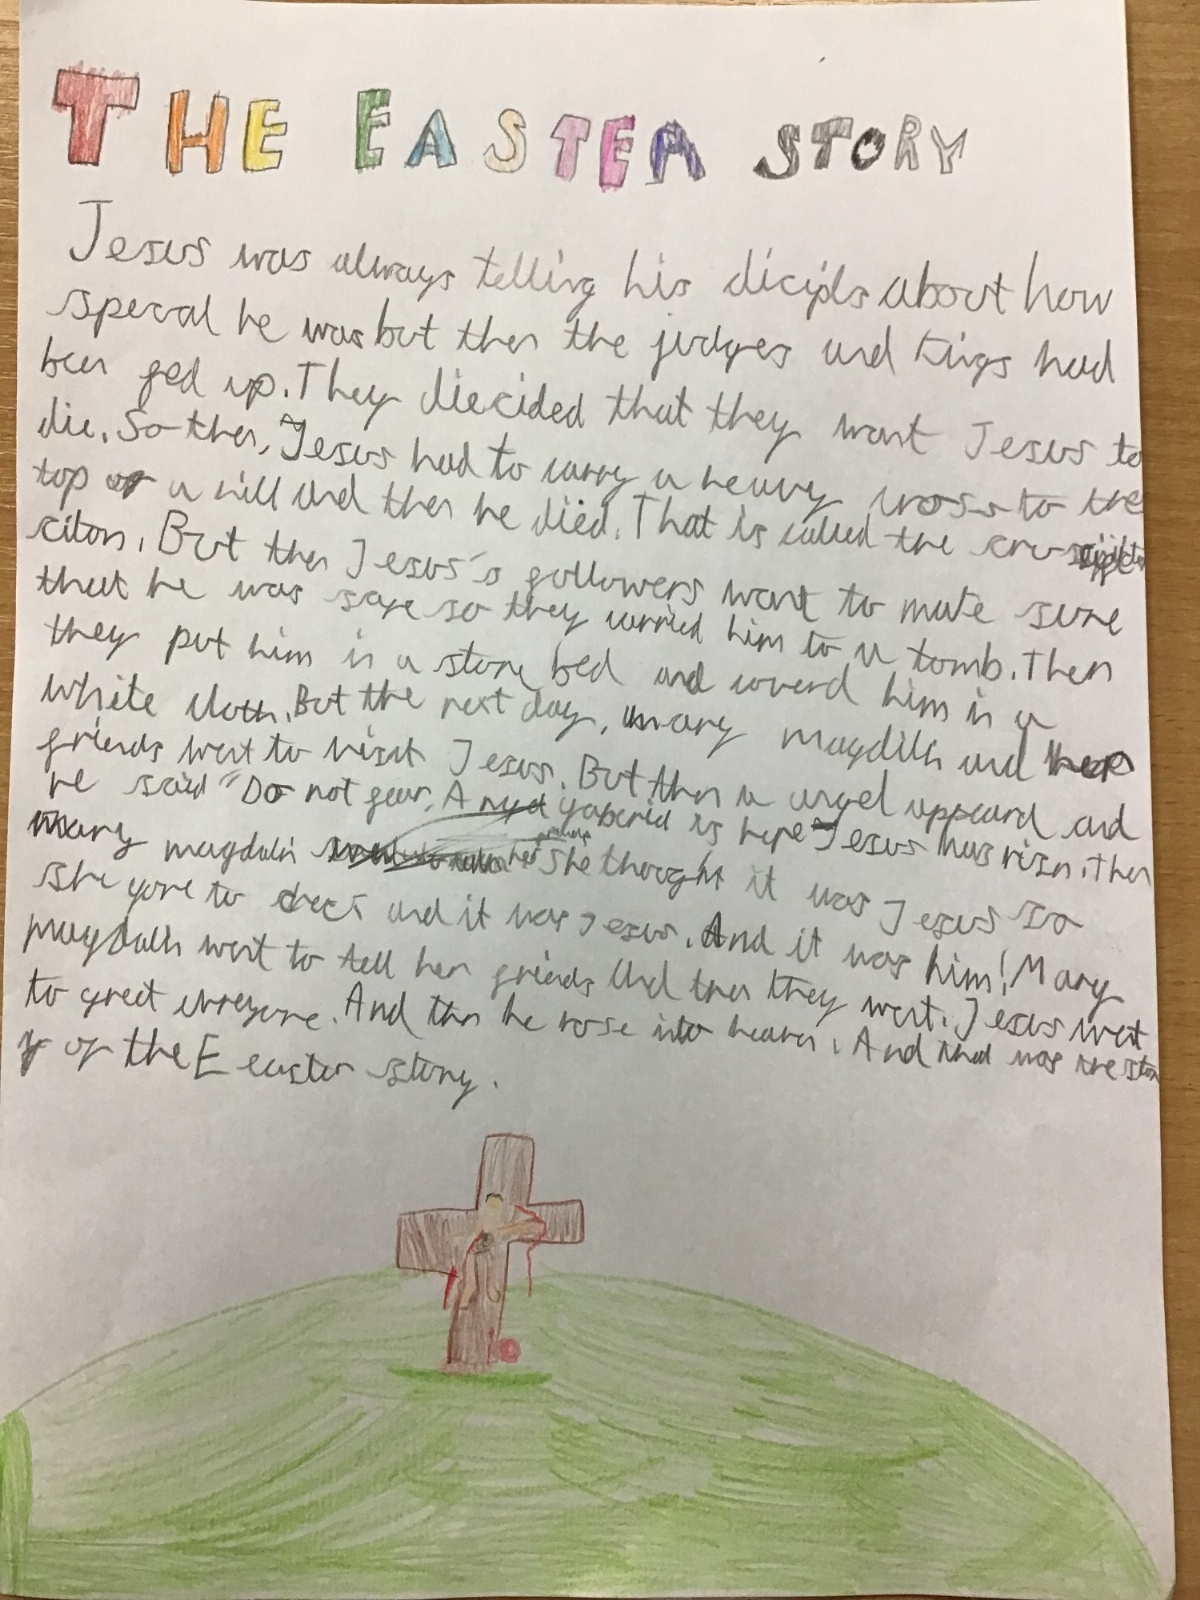 THE EASTER STORY
Jesus was always telling his dicipls about how
special he was but then the judges and kings had
been fed up. They diecided that they want Jesus to
die. So then, Jesus had to carry a heavy cross to the
top of a hill and then he died. That is called the
citon. But then Jesus's followers want to make sure
that he was safe so they carried him to a tomb. Then
they put him in a stone bed and coverd him in a
white cloth. But the next day, mary magdilh and her
friends went to visit Jesus. But then a angel appeard and
he said "Do not fear, A gaberial is here Jesus has risn. Then
mary magdaln she thought it was Jesus so
she gone to check and it was Jesus. And it was him! Mary
magdalh went to tell her friends and then they went. Jesus went
to greet everyone. And then he rose into heaven. And that was the stor
y of the Eeaster story.